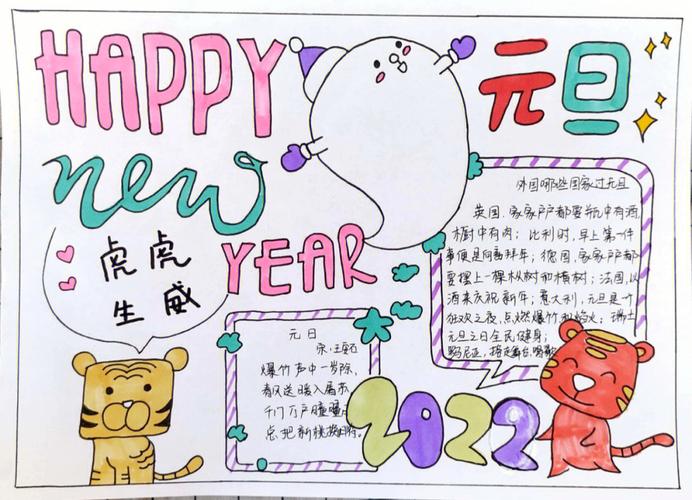 HAPPY
元旦
new
YEAR
虎虎
生威
外国哪些国家过元旦
英国,家家户户都要瓶中有酒,
橱中有肉;比利时,早上第一件
事便是向畜拜年;德国,家家户户都
要摆上一棵枞树和横树;法国,以
酒来庆祝新年;意大利,元旦是一个
狂欢之夜,点燃爆竹和焰火;瑞士
元旦之日全民健身;
元日
宋·王安石
爆竹声中一岁除,
春风送暖入屠苏
千门万户曈曈
总把新桃换旧符。
2022